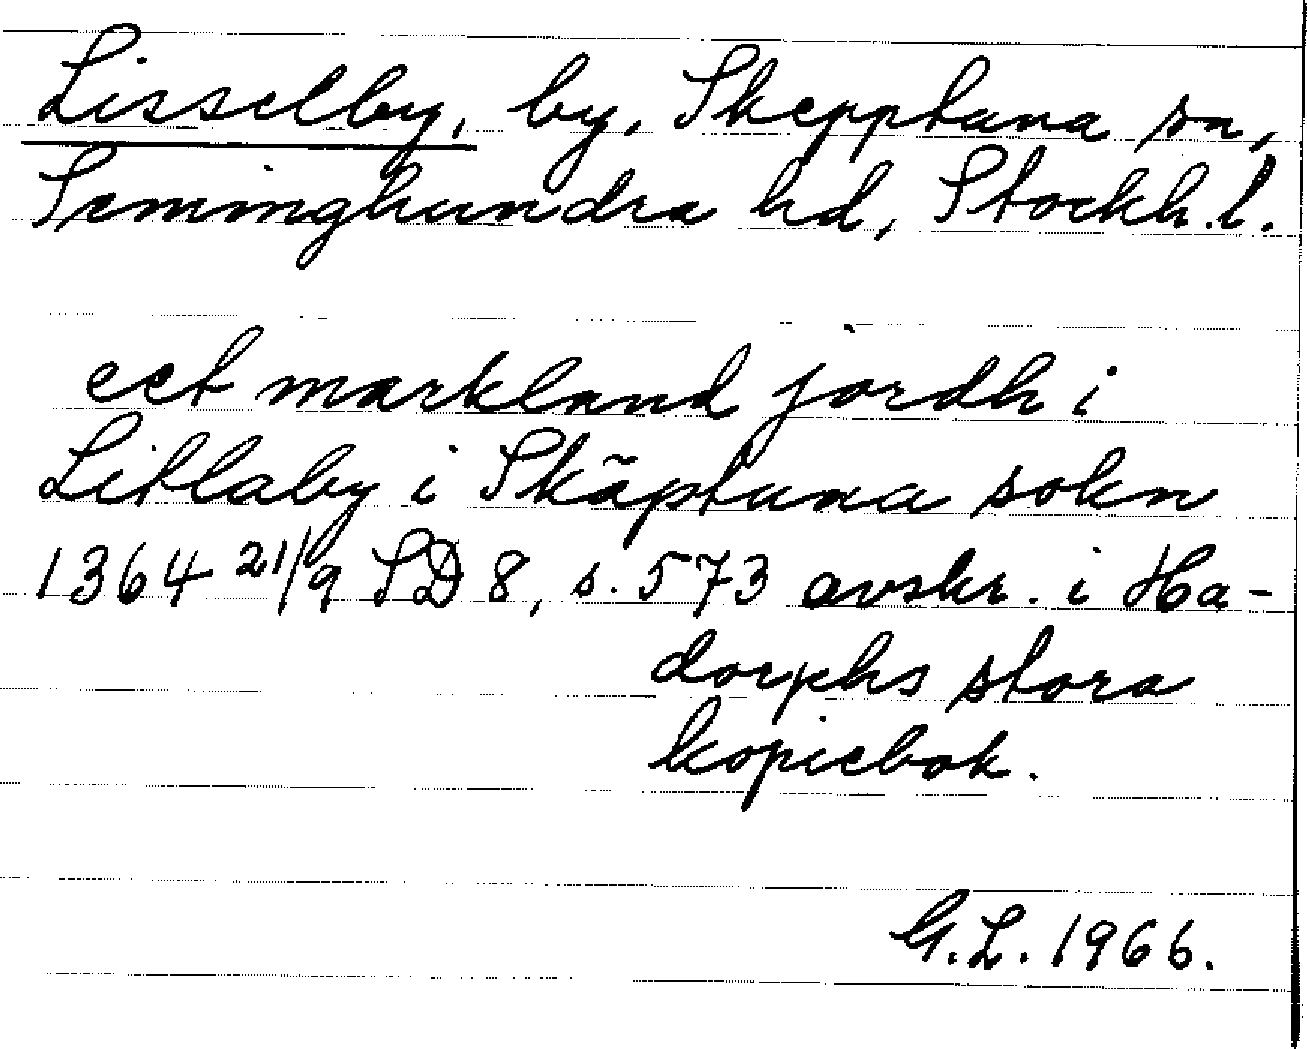 Lisselby, by, Skepptuna sn,
Seminghundra hd, Stockh. l.
eet markland jordh i
Litlaby i Skäptuna sokn
1364 21/9 SD 8, s. 573 avskr. i Ha-
dorphs stora
kopiebok.
G.L. 1966.